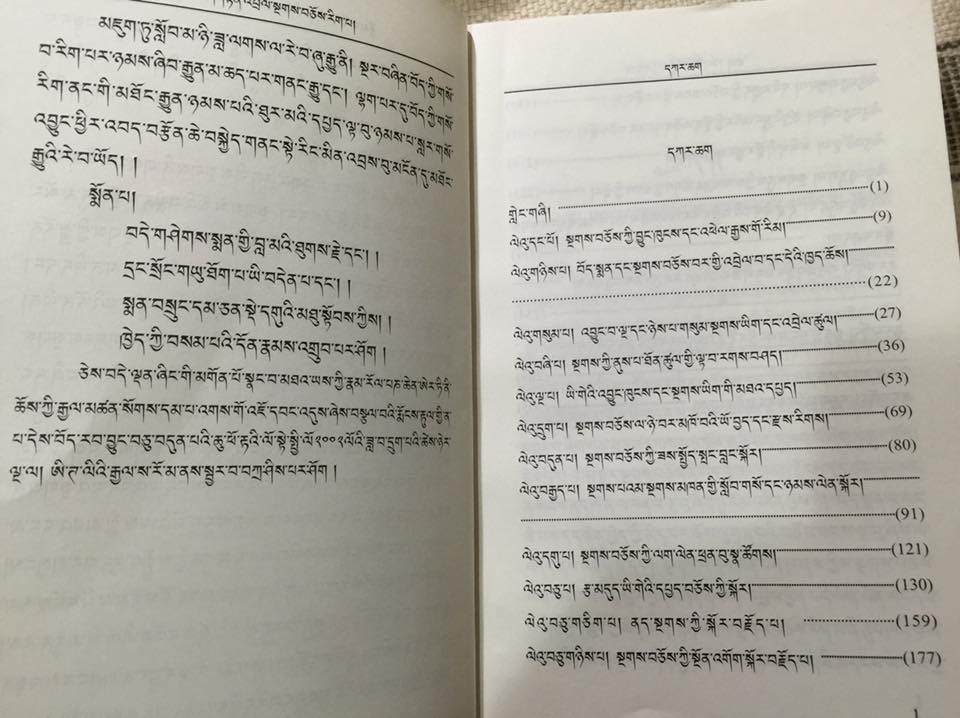 །རྟེན་འབྲེལ་སྔགས་བཅོས་རིག་པ།
མཇུག་ཏུ་སློབ་མ་ཉི་ཟླ་ལགས་ལ་རེ་བ་ཞུ་རྒྱུ་ནི། སྔར་བཞིན་བོད་ཀྱི་གསོ་
བ་རིག་པར་ཉམས་ཞིབ་རྒྱུན་མ་ཆད་པར་གནང་རྒྱུ་དང་། ལྷག་པར་དུ་བོད་ཀྱི་གསོ་
རིག་ནང་གི་མཐོང་རྒྱུན་ཉམས་པའི་ཐུར་མའི་དཔྱད་ལྟ་བུ་ཉམས་པ་སླར་གསོ་
འབྱུང་ཕྱིར་འབད་བརྩོན་ཆེ་བསྐྱེད་གནང་སྟེ་རིང་མིན་འབྲས་བུ་མངོན་དུ་མཐོང་
རྒྱུའི་རེ་བ་ཡོད། །
སྨོན་པ།
བདེ་གཤེགས་སྨན་གྱི་བླ་མའི་ཐུགས་རྗེ་དང་། །
དྲང་སྲོང་གཡུ་ཐོག་པ་ཡི་བདེན་པ་དང་། །
སྨན་བསྲུང་དམ་ཅན་སྡེ་དགུའི་མཐུ་སྟོབས་ཀྱིས། །
ཁྱེད་ཀྱི་བསམ་པའི་དོན་རྣམས་འགྲུབ་པར་ཤོག །
ཅེས་བདེ་ལྡན་ཞིང་གི་མགོན་པོ་སྣང་བ་མཐའ་ཡས་ཀྱི་རྣམ་རོལ་པཎ་ཆེན་ཨེར་ཏི་ནི་
ཆོས་ཀྱི་རྒྱལ་མཚན་སོགས་དམ་པ་འགས་གོ་འཇོ་དབང་འདུས་ཞེས་བསྩལ་བའི་རྨོངས་རྟུལ་གྱི་ན་
པ་དེས་བོད་རབ་བྱུང་བཅུ་བདུན་པའི་ཆུ་ཕོ་རྟའི་ལོ་སྟེ་སྤྱི་ལོ་༢༠༠༢ལོའི་ཟླ་བ་དྲུག་པའི་ཚེས་ཉེར་
ལྔ་ལ། ཨི་ཊ་ལིའི་རྒྱལ་ས་རོ་མ་ནས་སྦྱར་བ་བཀྲ་ཤིས་པར་ཤོག །
དཀར་ཆག
དཀར་ཆག
གླེང་གཞི། (1)
ལེའུ་དང་པོ། སྔགས་བཅོས་ཀྱི་བྱུང་ཁུངས་དང་འཕེལ་རྒྱས་གོ་རིམ། (9)
ལེའུ་གཉིས་པ། བོད་སྨན་དང་སྔགས་བཅོས་བར་གྱི་འབྲེལ་བ་དང་དེའི་ཁྱད་ཆོས།
(22)
ལེའུ་གསུམ་པ། འབྱུང་བ་ལྔ་དང་ཉེས་པ་གསུམ་སྔགས་ཡིག་དང་འབྲེལ་ཚུལ། (27)
ལེའུ་བཞི་པ། སྔགས་ཀྱི་ནུས་པ་ཐོན་ཚུལ་གྱི་ལྟ་བ་རགས་བཤད། (36)
ལེའུ་ལྔ་པ། ཡི་གེའི་འབྱུང་ཁུངས་དང་སྔགས་ཡིག་གི་མཐའ་དཔྱད། (53)
ལེའུ་དྲུག་པ། སྔགས་བཅོས་ལ་ཉེ་བར་མཁོ་བའི་ཡོ་བྱད་དང་རྫས་རིགས། (69)
ལེའུ་བདུན་པ། སྔགས་བཅོས་ཀྱི་ཟས་སྤྱོད་སྤང་བླང་སྐོར། (80)
ལེའུ་བརྒྱད་པ། སྔགས་པའམ་སྔགས་མཁན་གྱི་སློབ་གསོ་དང་ཉམས་ལེན་སྐོར།
(91)
ལེའུ་དགུ་པ། སྔགས་བཅོས་ཀྱི་ལག་ལེན་ཕྲན་བུ་སྣ་ཚོགས། (121)
ལེའུ་བཅུ་པ། རྩ་མདུད་ཡི་གེའི་དཔྱད་བཅོས་ཀྱི་སྐོར། (130)
ལེའུ་བཅུ་གཅིག་པ། ནད་སྔགས་ཀྱི་སྐོར་བརྗོད་པ། (159)
ལེའུ་བཅུ་གཉིས་པ། སྔགས་བཅོས་ཀྱི་སྔོན་འགོག་སྐོར་བརྗོད་པ། (177)
1